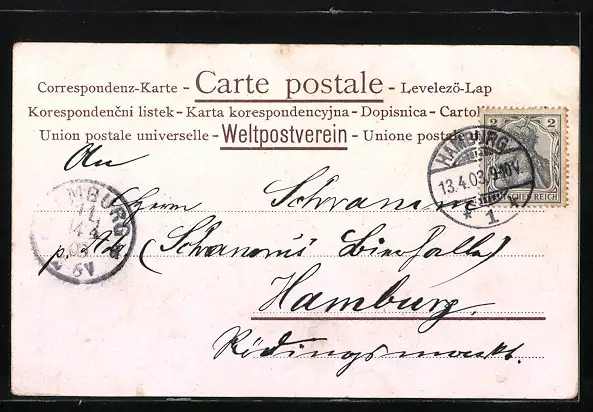 Correspondenz-Karte - Carte postale - Levelezö-Lap
Korespondenční listek - Karta korespondencyjna - Dopisnica - Cartol
Union postale universelle - Weltpostverein - Unione postale
2 2
DEUTSCHES REICH
HAMBURG
13.4.03.9-10V.
* 1 *
HAMBURG
11.
14 4
03
6V
An
Herrn Schramm
(Schramm's Bierhalle)
Hamburg.
Rödingsmarkt.